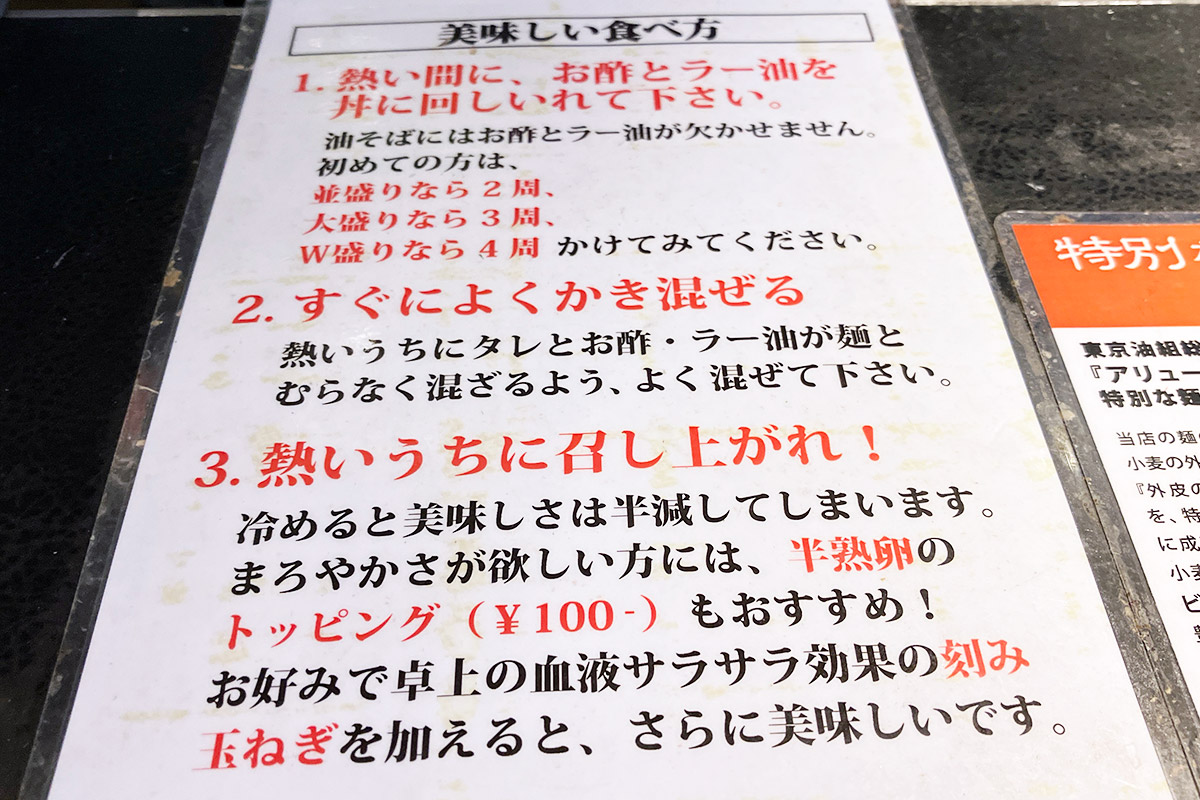 美味しい食べ方
1. 熱い間に、お酢とラー油を
丼に回しいれて下さい。
油そばにはお酢とラー油が欠かせません。
初めての方は、
並盛りなら2周、
大盛りなら3周、
W盛りなら4周 かけてみてください。
2. すぐによくかき混ぜる
熱いうちにタレとお酢・ラー油が麺と
むらなく混ざるよう、よく混ぜて下さい。
3. 熱いうちに召し上がれ！
冷めると美味しさは半減してしまいます。
まろやかさが欲しい方には、半熟卵の
トッピング（￥100-）もおすすめ！
お好みで卓上の血液サラサラ効果の刻み
玉ねぎを加えると、さらに美味しいです。
特別
東京油組総
『アリュー
特別な麺
当店の麺
小麦の外
『外皮の
を、特
に成
小麦
ビ